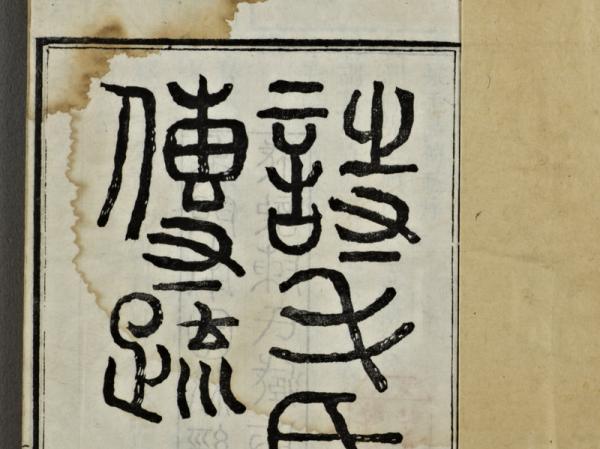 詩毛氏
傳疏